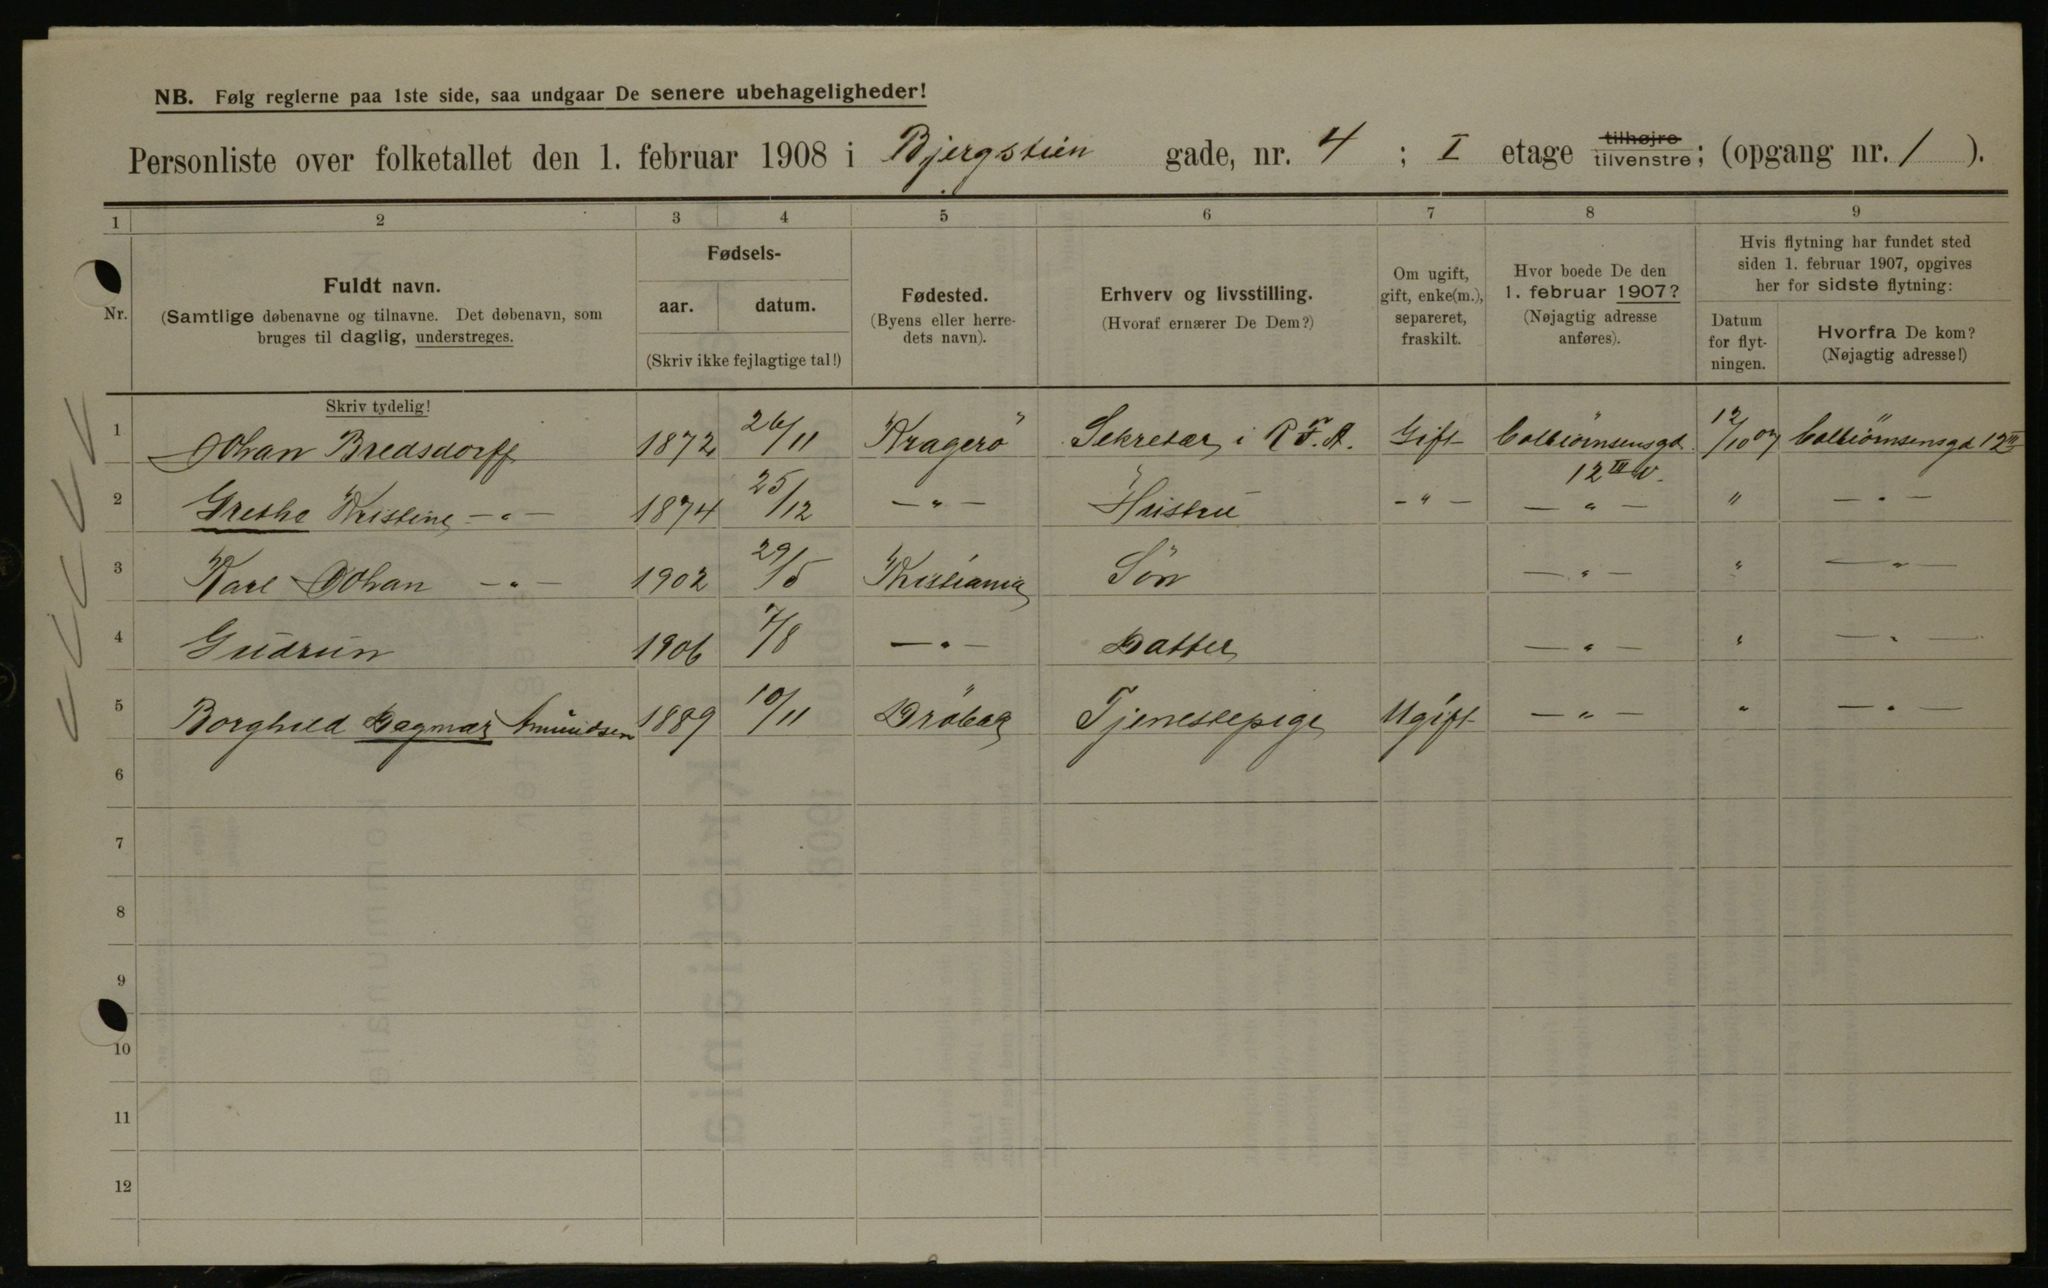 NB. Følg reglerne paa 1ste side, saa undgaar De senere ubehageligheder!
Personliste over folketallet den 1. februar 1908 i Bjergstien gade, nr. 4 ; I etage tilhøjre tilvenstre; (opgang nr. 1 ).
1 2 3 4 5 6 7 8 9
Nr.
Fuldt navn.
(Samtlige døbenavne og tilnavne. Det døbenavn, som
bruges til daglig, understreges.
Fødsels-
aar. datum.
(Skriv ikke fejlagtige tal!)
Fødested.
(Byens eller herre-
dets navn).
Erhverv og livsstilling.
(Hvoraf ernærer De Dem?)
Om ugift,
gift, enke(m.),
separeret,
fraskilt.
Hvor boede De den
1. februar 1907?
(Nøjagtig adresse
anføres).
Hvis flytning har fundet sted
siden 1. februar 1907, opgives
her for sidste flytning:
Datum
for flyt-
ningen.
Hvorfra De kom?
(Nøjagtig adresse!)
Skriv tydelig!
1 Johan Bredsdorff 1872 26/11 Kragerö Sekretær i R.F.A. Gift Colbiörnsensgd. 12 III v. 12/10 07 Colbiörnsensgd 12 III
2 Grethe Kristine -"- 1874 25/12 -"- Hustru -"- -"- " -"-
3 Karl Johan -"- 1902 29/5 Kristiania Sön -"- " -"-
4 Gudrun 1906 7/8 -"- Datter -"- " -"-
5 Borghild Dagmar Amundsen 1889 10/11 Dröbak Tjenestepige Ugift -"- " -"-
6
7
8
9
10
11
12